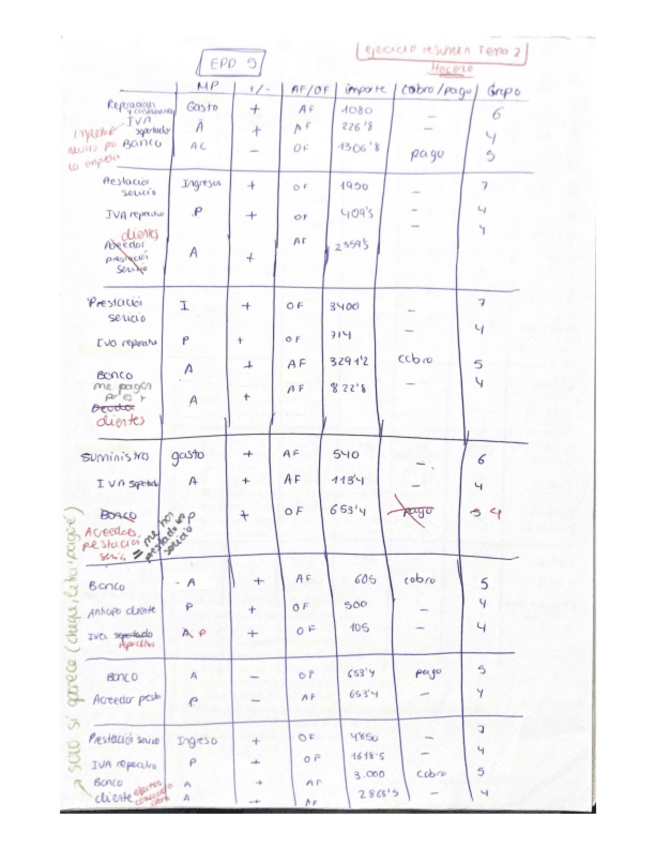 EPD 5
Ejercicio resumen Tema 2
Hacerlo
MP +/- AF/OF importe Cobro/pago Grupo
Reparaciones Gasto + AF 1080 - 6
IVA soportado A + AF 226'8 - 4
Banco AC - OF 1306'8 pago 5
la empresa
Prestación servicio Ingresos + OF 1950 - 7
IVA repercutido P + OF 409'5 - 4
clientes
Acreedor prestación servicio A + AF 2359'5 - 4
Prestación servicio I + OF 3400 - 7
IVA repercutido P + OF 714 - 4
Banco A + AF 3291'2 cobro 5
me pagan A + AF 822'8 - 4
Deudor
clientes
Suministro gasto + AF 540 - 6
IVA soportado A + AF 113'4 - 4
Banco P + OF 653'4 pago 5 4
Acreedores prestación servic = me han prestado un servicio
Banco - A + AF 605 cobro 5
Anticipo cliente P + OF 500 - 4
IVA soportado A P + OF 105 - 4
repercutido
Banco A - OF 653'4 pago 5
Acreedor presta P - AF 653'4 - 4
Prestación servicio Ingreso + OF 4850 - 7
IVA repercutido P + OF 1618'5 - 4
Banco A + AF 3.000 Cobro 5
cliente efectos A + AF 2868'5 - 4
→ SOLO si aparece (cheque, letra, pagaré)